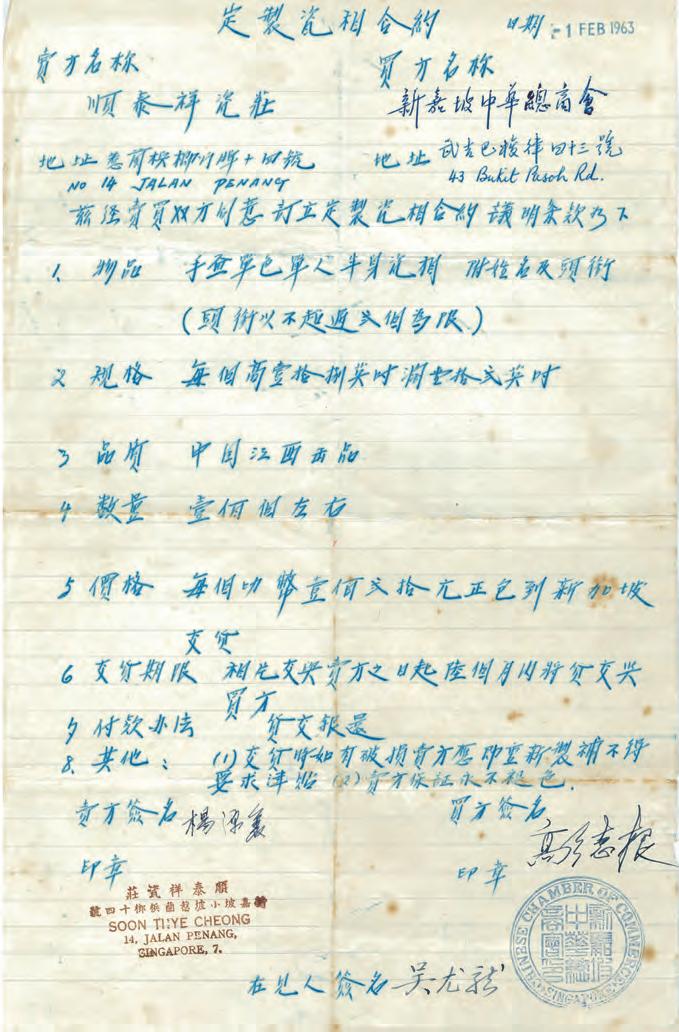 定製瓷相合約 日期 -1 FEB 1963
賣方名称 買方名称
順泰祥瓷莊 新嘉坡中華總商會
地址 惹蘭梹榔門牌十四號 地址 武吉巴梭律四十三號
NO 14 JALAN PENANG 43 Bukit Pasoh Rd.
茲経賣買双方同意訂立定製瓷相合約議明条款為下
1. 物品 手畫單色單人半身瓷相 附姓名及頭銜
(頭銜以不超過弍個為限)
2 規格 每個高壹拾捌英吋濶壹拾弍英吋
3 品質 中国江西出品
4 数量 壹佰個左右
5 價格 每個叻幣壹佰弍拾元正包到新加坡
交貨
6 交貨期限 相片交與賣方之日起陸個月内將貨交與
買方
7 付款办法 貨交銀還
8. 其他: (1)交貨時如有破損賣方應即重新製補不得
要求津貼 (2)賣方保証永不褪色.
賣方簽名 楊 買方簽名
高 志根
印章 印章
莊瓷祥泰順
號四十榔梹蘭惹坡小坡嘉新
SOON THYE CHEONG
14, JALAN PENANG,
SINGAPORE, 7.
CHINESE CHAMBER OF COMMERCE
SINGAPORE
在見人簽名 吴尤